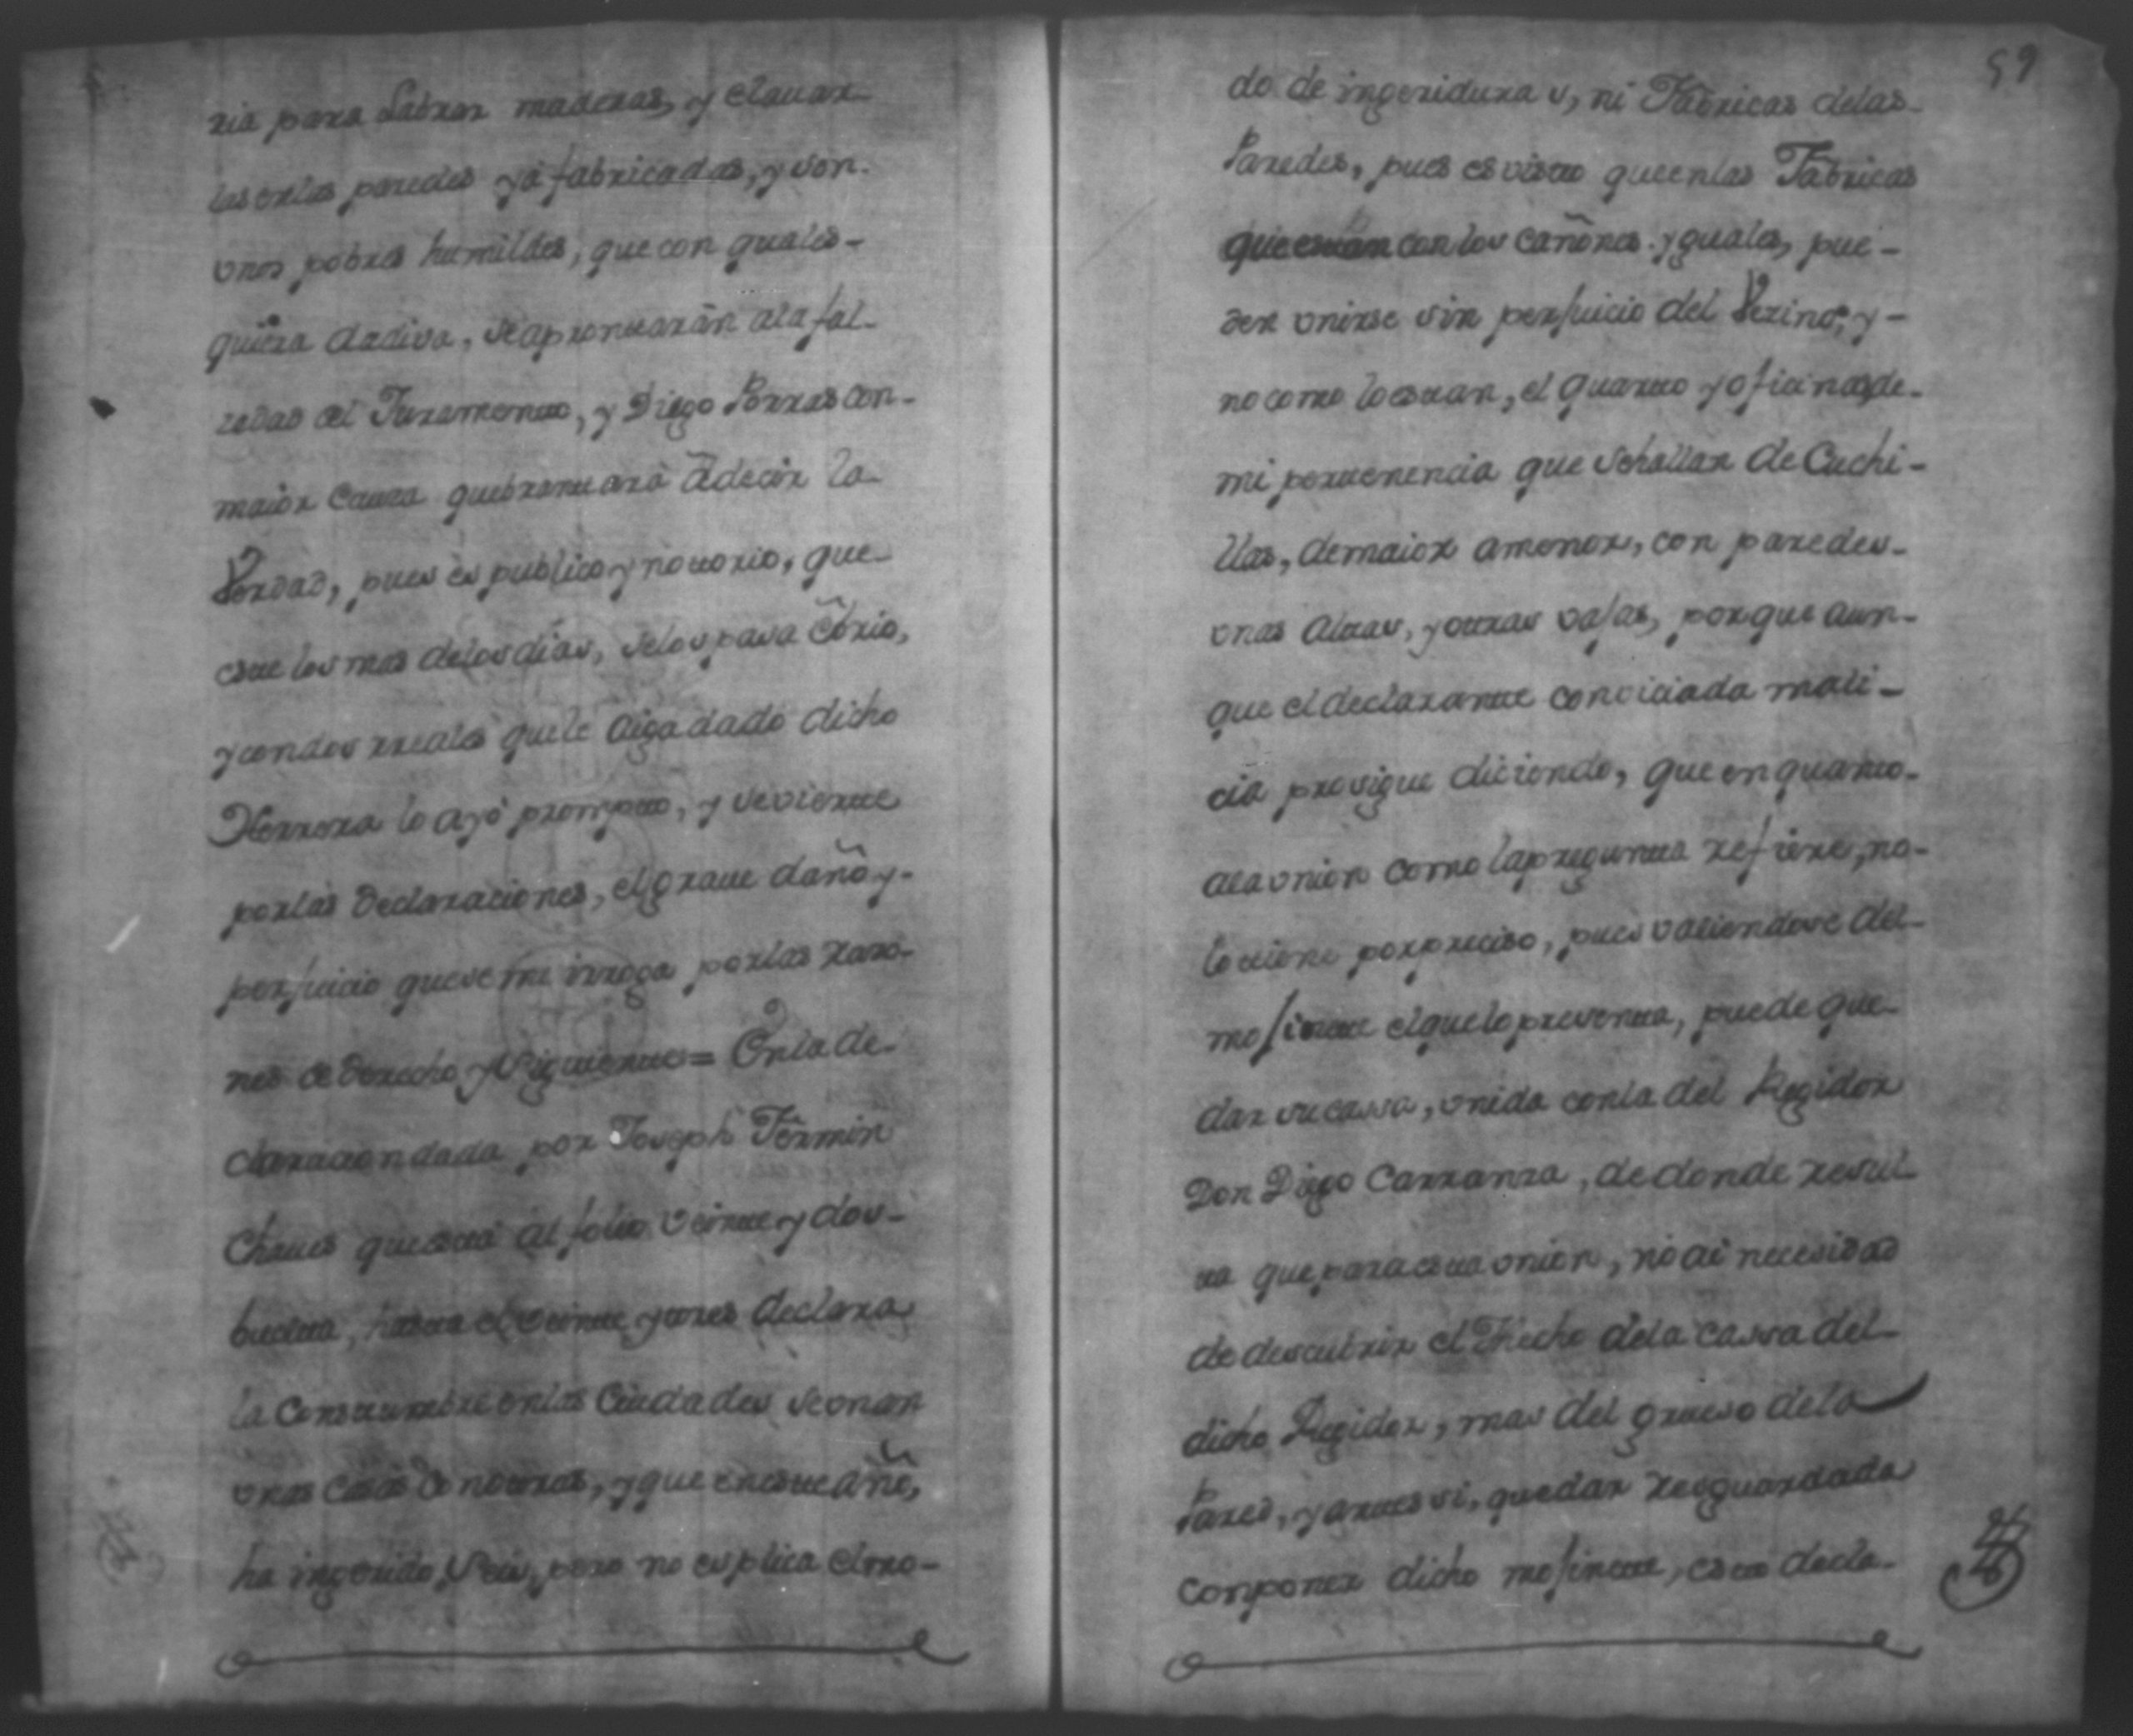 ria para Labrar maderas, y clauar
las enlas paredes ya fabricadas, y son
vnos pobres humildes, que con quales-
quiera dadiva, se aprontarán ala fal-
cedad del Juramento, y Diego Porras con
maior Causa quebrantará ã decir la
Verdad, pues es publico y notorio, que
este los mas delos dias, selos pasa ebrio,
y condos rreales quele aiga dado dicho
Herrera lo ayó prompto, y se vierte
porlas declaraciones, el graue daño y
perjuicio que seme irroga porlas razo-
nes de derecho, y Siguientes= Enla de-
claracion dada por Joseph Fermin
Chaues que está al folio veinte y dos
buelta, hasta el veinte y tres declara
la Constumbre enlas Ciudades Se vnan
vnas Casas con otras, y que eneste añe,
ha ingerido, Seis, pero no explica elmo-
59
do de ingeridura s, ni Fabricas delas
Paredes, pues es visto queenlas Fabricas
que estan con los cañones yguales, pue-
den vnirse sin perjuicio del Vezino, y-
no como loestan, el quarto y oficinas, de
mi pertenencia que Sehallan de Cuchi-
llas, demaior amenor, con paredes
vnas Altas, y otras vajas, porque aun-
que eldeclarante conviciada mali-
cia prosigue diciendo, que en quanto
ala vnion como lapregunta refiere, no-
lo tiene porpreciso, pues valiendose del
mojinete el quelo preventa, puede que-
dar su cassa, vnida conla del Regidor
Don Diego Carranza, de donde resul-
ta que para esta vnion, no ai necesidad
de descubrir el Techo dela Cassa del
dicho Regidor, mas del grueso dela
Pared, y antes si, quedar resguardada
componer dicho mojinete, esto decla-